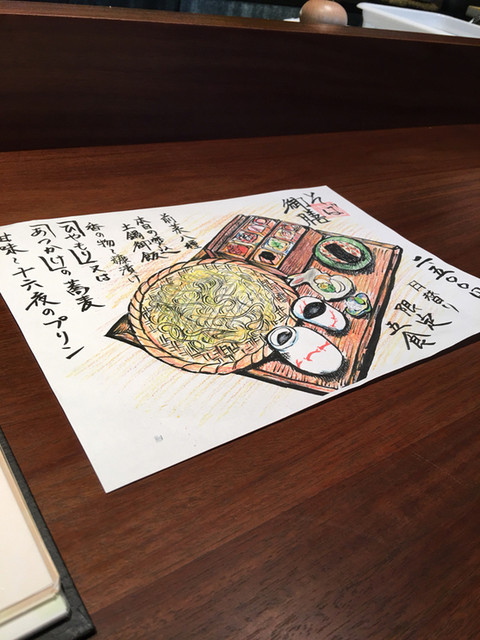 そば
御膳
二五〇〇円
日替り
限定
五食
前菜八種
本日の
土鍋御飯
香の物〜糠漬け
「ひやもり」又は
「あつかけ」の蕎麦
甘味〜十六夜のプリン